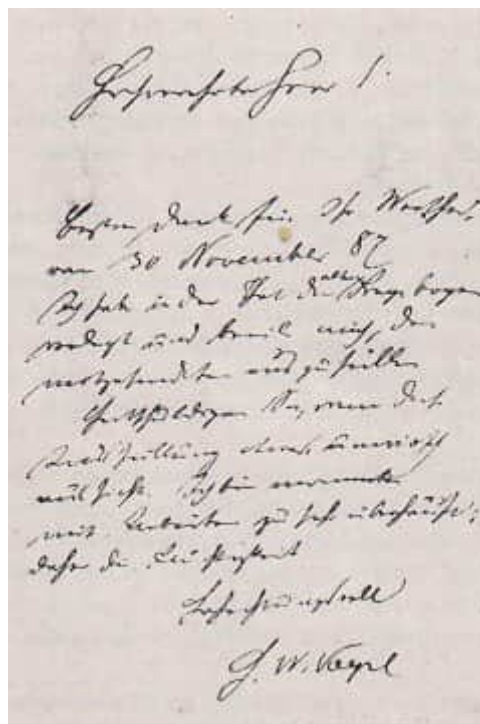 Hochverehrter Herr!
Besten Dank für Ihr Werthes
vom 30 November 87
Ich habe in der That den alten Fragebogen
verlegt und beeile mich, den
auszufüllen
Entschuldigen Sie, wenn die
Ausfüllung etwas
aussieht. Ich bin momentan
mit Arbeiten zu sehr überhäuft;
daher die Flüchtigkeit
Hochachtungsvoll
H. W. Vogel